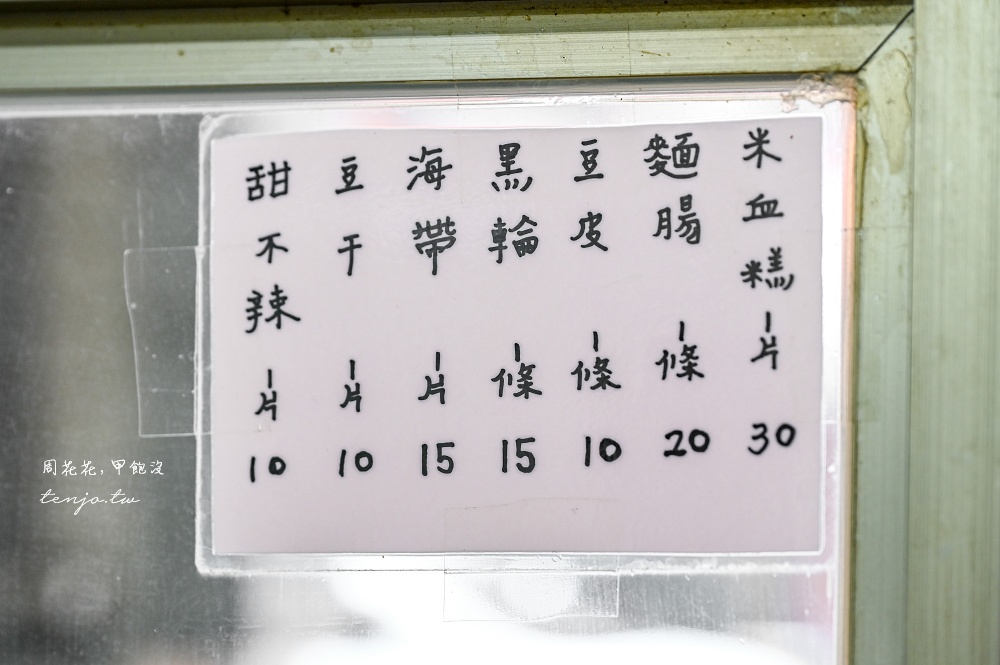 米血糕1片30
麵腸1條20
豆皮1條10
黑輪1條15
海帶1片15
豆干1片10
甜不辣1片10
周花花,甲飽沒
tenjo.tw